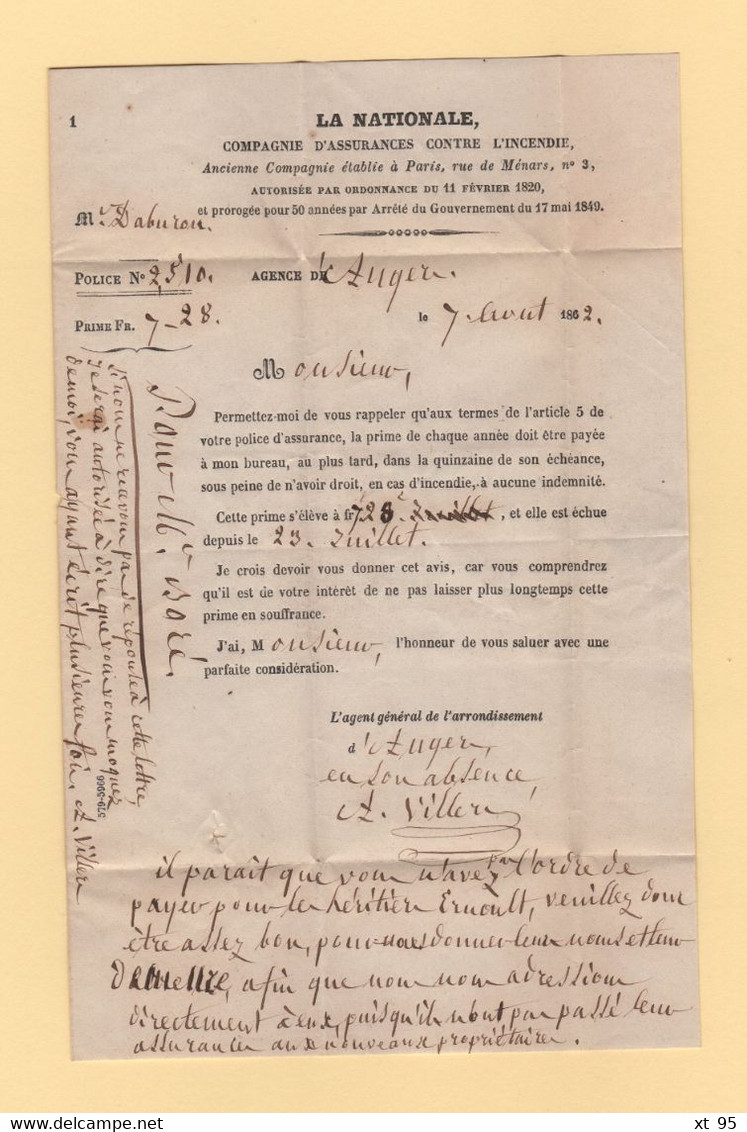 1
LA NATIONALE,
COMPAGNIE D'ASSURANCES CONTRE L'INCENDIE,
Ancienne Compagnie établie à Paris, rue de Ménars, nº 3,
AUTORISÉE PAR ORDONNANCE DU 11 FÉVRIER 1820,
et prorogée pour 50 années par Arrêté du Gouvernement du 17 mai 1849.
Mr Daburon.
POLICE Nº 2,510.
AGENCE DE d'Angers.
PRIME FR. 7-28.
le 7 Aout 1862.
Monsieur,
Permettez-moi de vous rappeler qu'aux termes de l'article 5 de
votre police d'assurance, la prime de chaque année doit être payée
à mon bureau, au plus tard, dans la quinzaine de son échéance,
sous peine de n'avoir droit, en cas d'incendie, à aucune indemnité.
Cette prime s'élève à fr 728 c Juillet, et elle est échue
depuis le 23. Juillet.
Je crois devoir vous donner cet avis, car vous comprendrez
qu'il est de votre intérêt de ne pas laisser plus longtemps cette
prime en souffrance.
J'ai, Monsieur, l'honneur de vous saluer avec une
parfaite considération.
L'agent général de l'arrondissement
d'Angers,
en son absence,
A. Villers
il paraît que vous n'avez pas l'ordre de
payer pour les héritiers Ernoult, veuillez donc
être assez bon, pour nous donner leurs noms et leur
demeure, afin que nous nous adressions
directement à eux, puisqu'ils n'ont pas passé leur
assurances aux nouveaux propriétaires.
Pour Mr Boré.
Si nous ne recevons pas de réponse à cette lettre,
je serai autorisée à dire que vous vous moquez
de moi, vous ayant écrit plusieurs fois. A. Villers
579-5966
xt 95